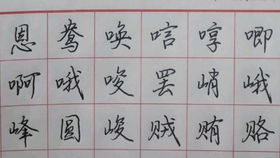 恩鸯唤唁哼唧
啊哦唆罢峭峨
峰圆峻贼贿赂